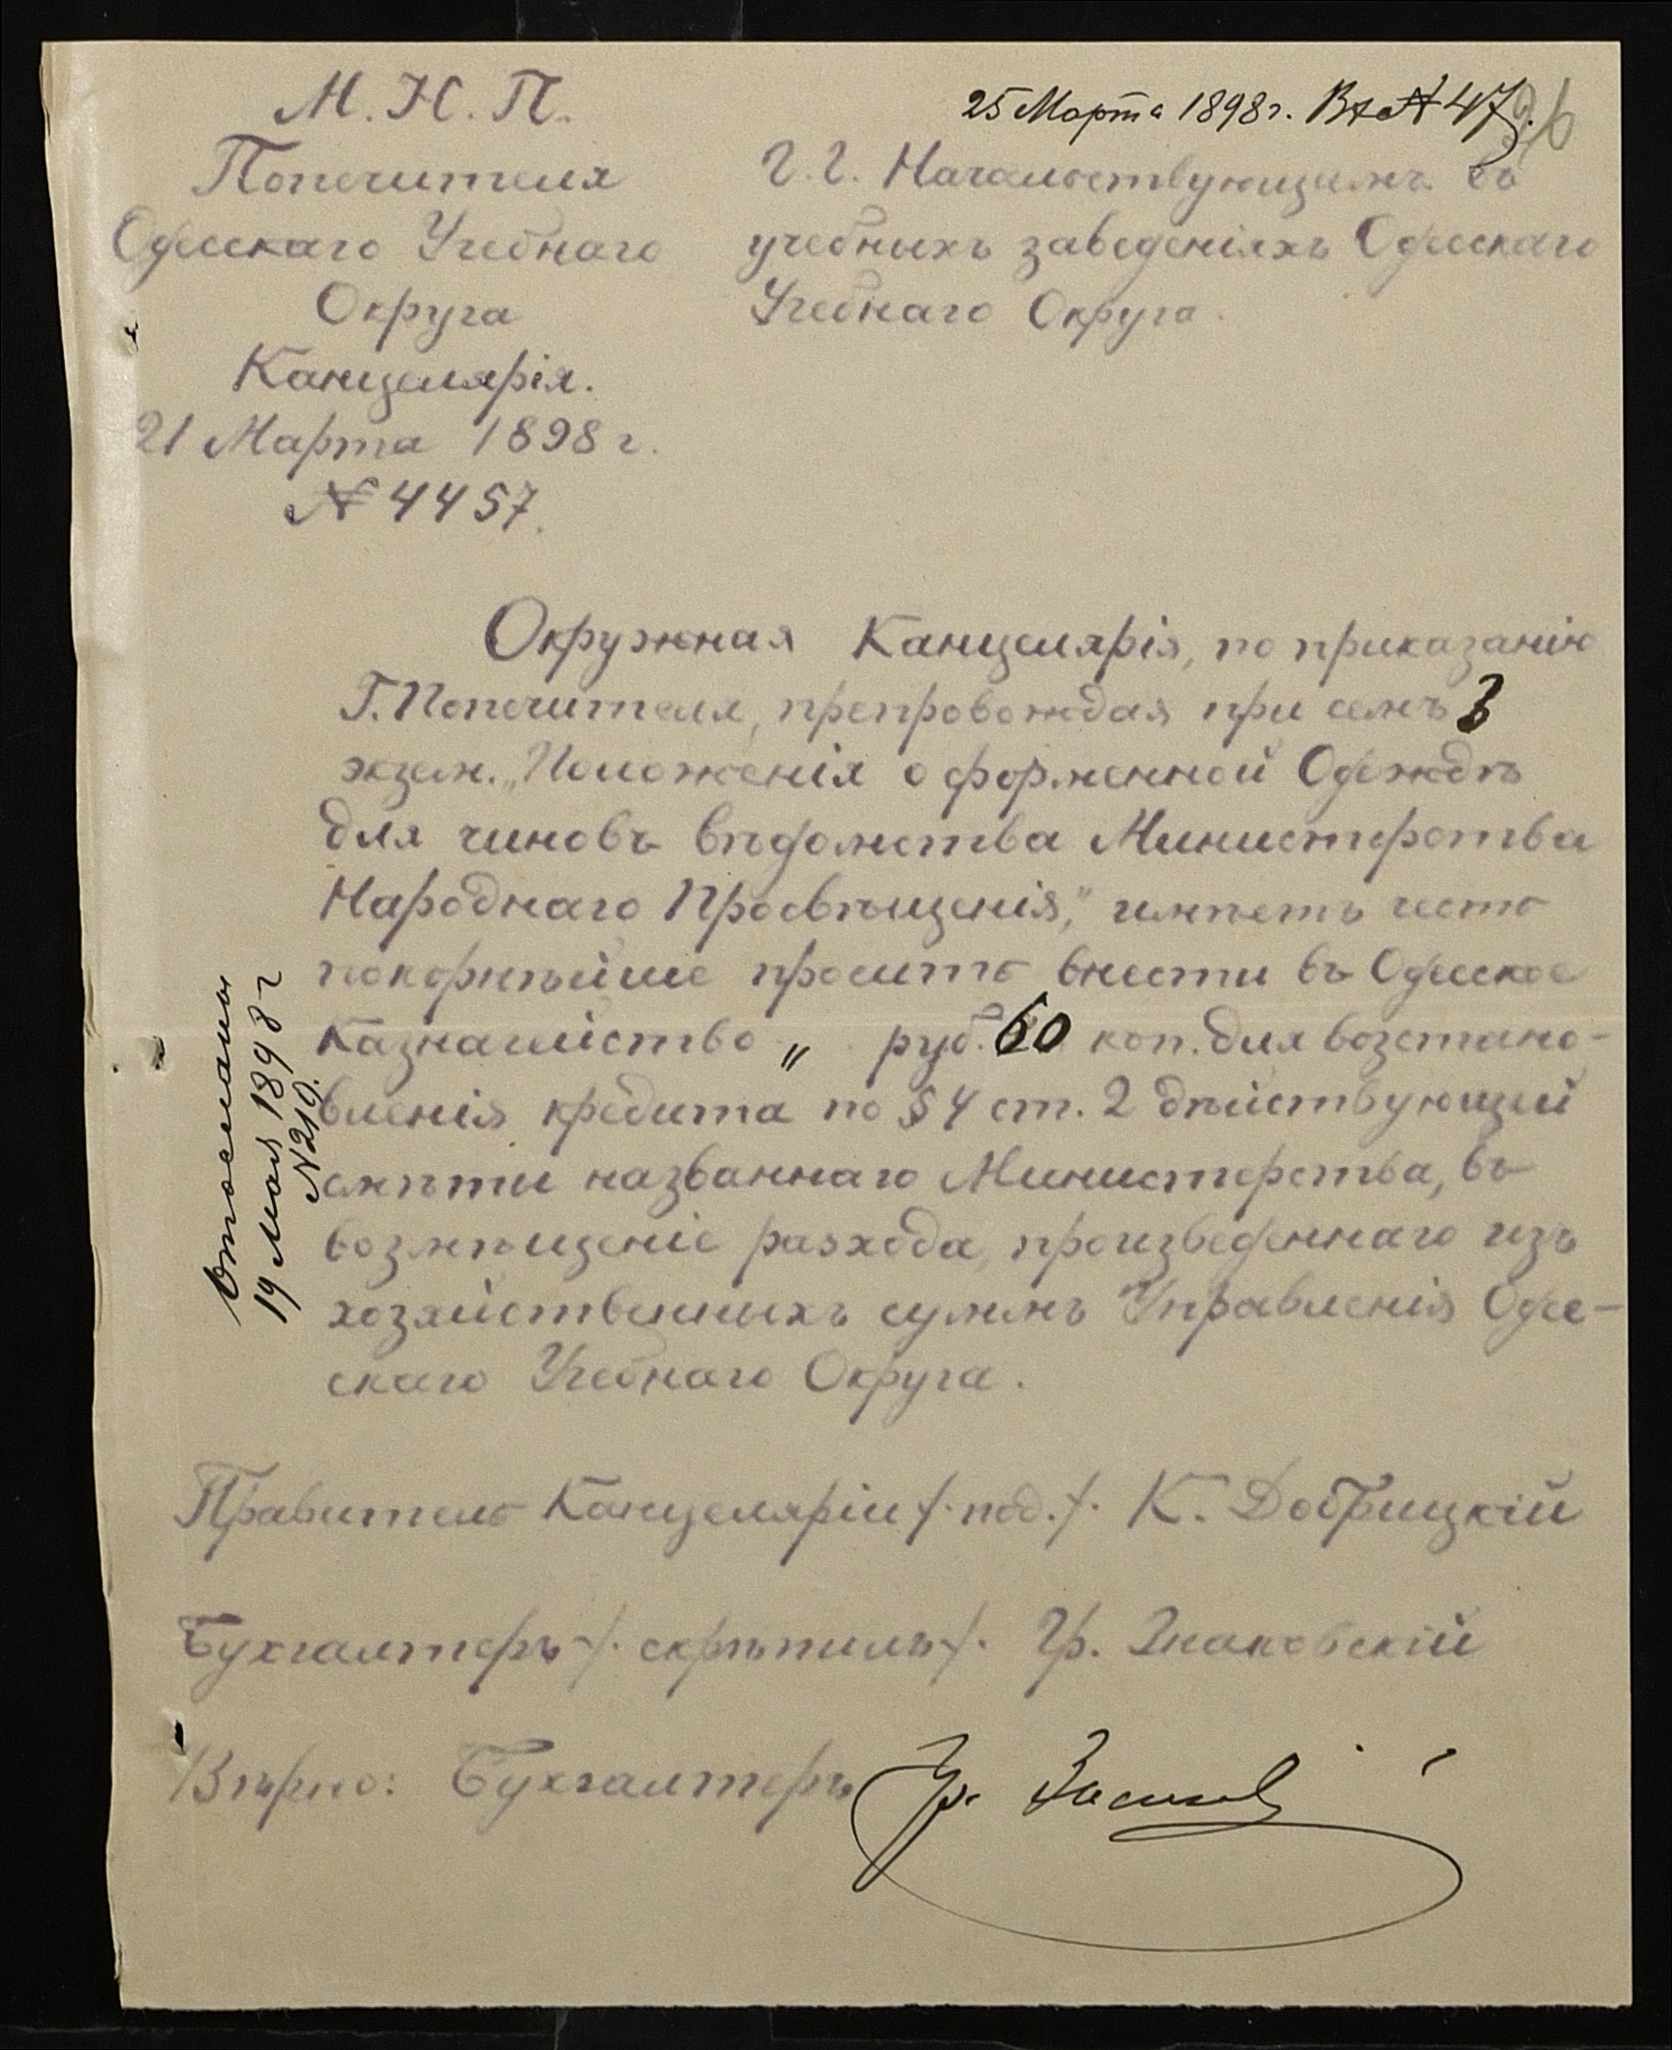 М. Н. П.
Попечителя
Одесскаго Учебнаго
Округа
Канцелярія.
21 Марта 1898 г.
№ 4457.
25 Марта 1898 г. Вх № 47.
Г.Г. Начальствующимъ въ
учебныхъ заведеніяхъ Одесскаго
Учебнаго Округа.
Окружная Канцелярія, по приказанію
Г. Попечителя, препровождая при семъ 3
экзем. „Положенія о форменной Одеждѣ
для чиновъ вѣдомства Министерства
Народнаго Просвѣщенія," имѣетъ честь
покорнѣйше просить внести въ Одесское
Казначейство „ руб. 60 коп. для возстано-
вленія кредита по § 4 ст. 2 дѣйствующей
смѣты названнаго Министерства, въ
возмѣщеніе разхода, произведеннаго изъ
хозяйственныхъ суммъ Управленія Одес-
скаго Учебнаго Округа.
Отосланы
19 Мая 1898 г
№ 219.
Правитель Канцеляріи /. под. /. К. Добрицкій
Бухгалтеръ /. скрѣпилъ /. Гр.
Вѣрно: Бухгалтеръ Гр.